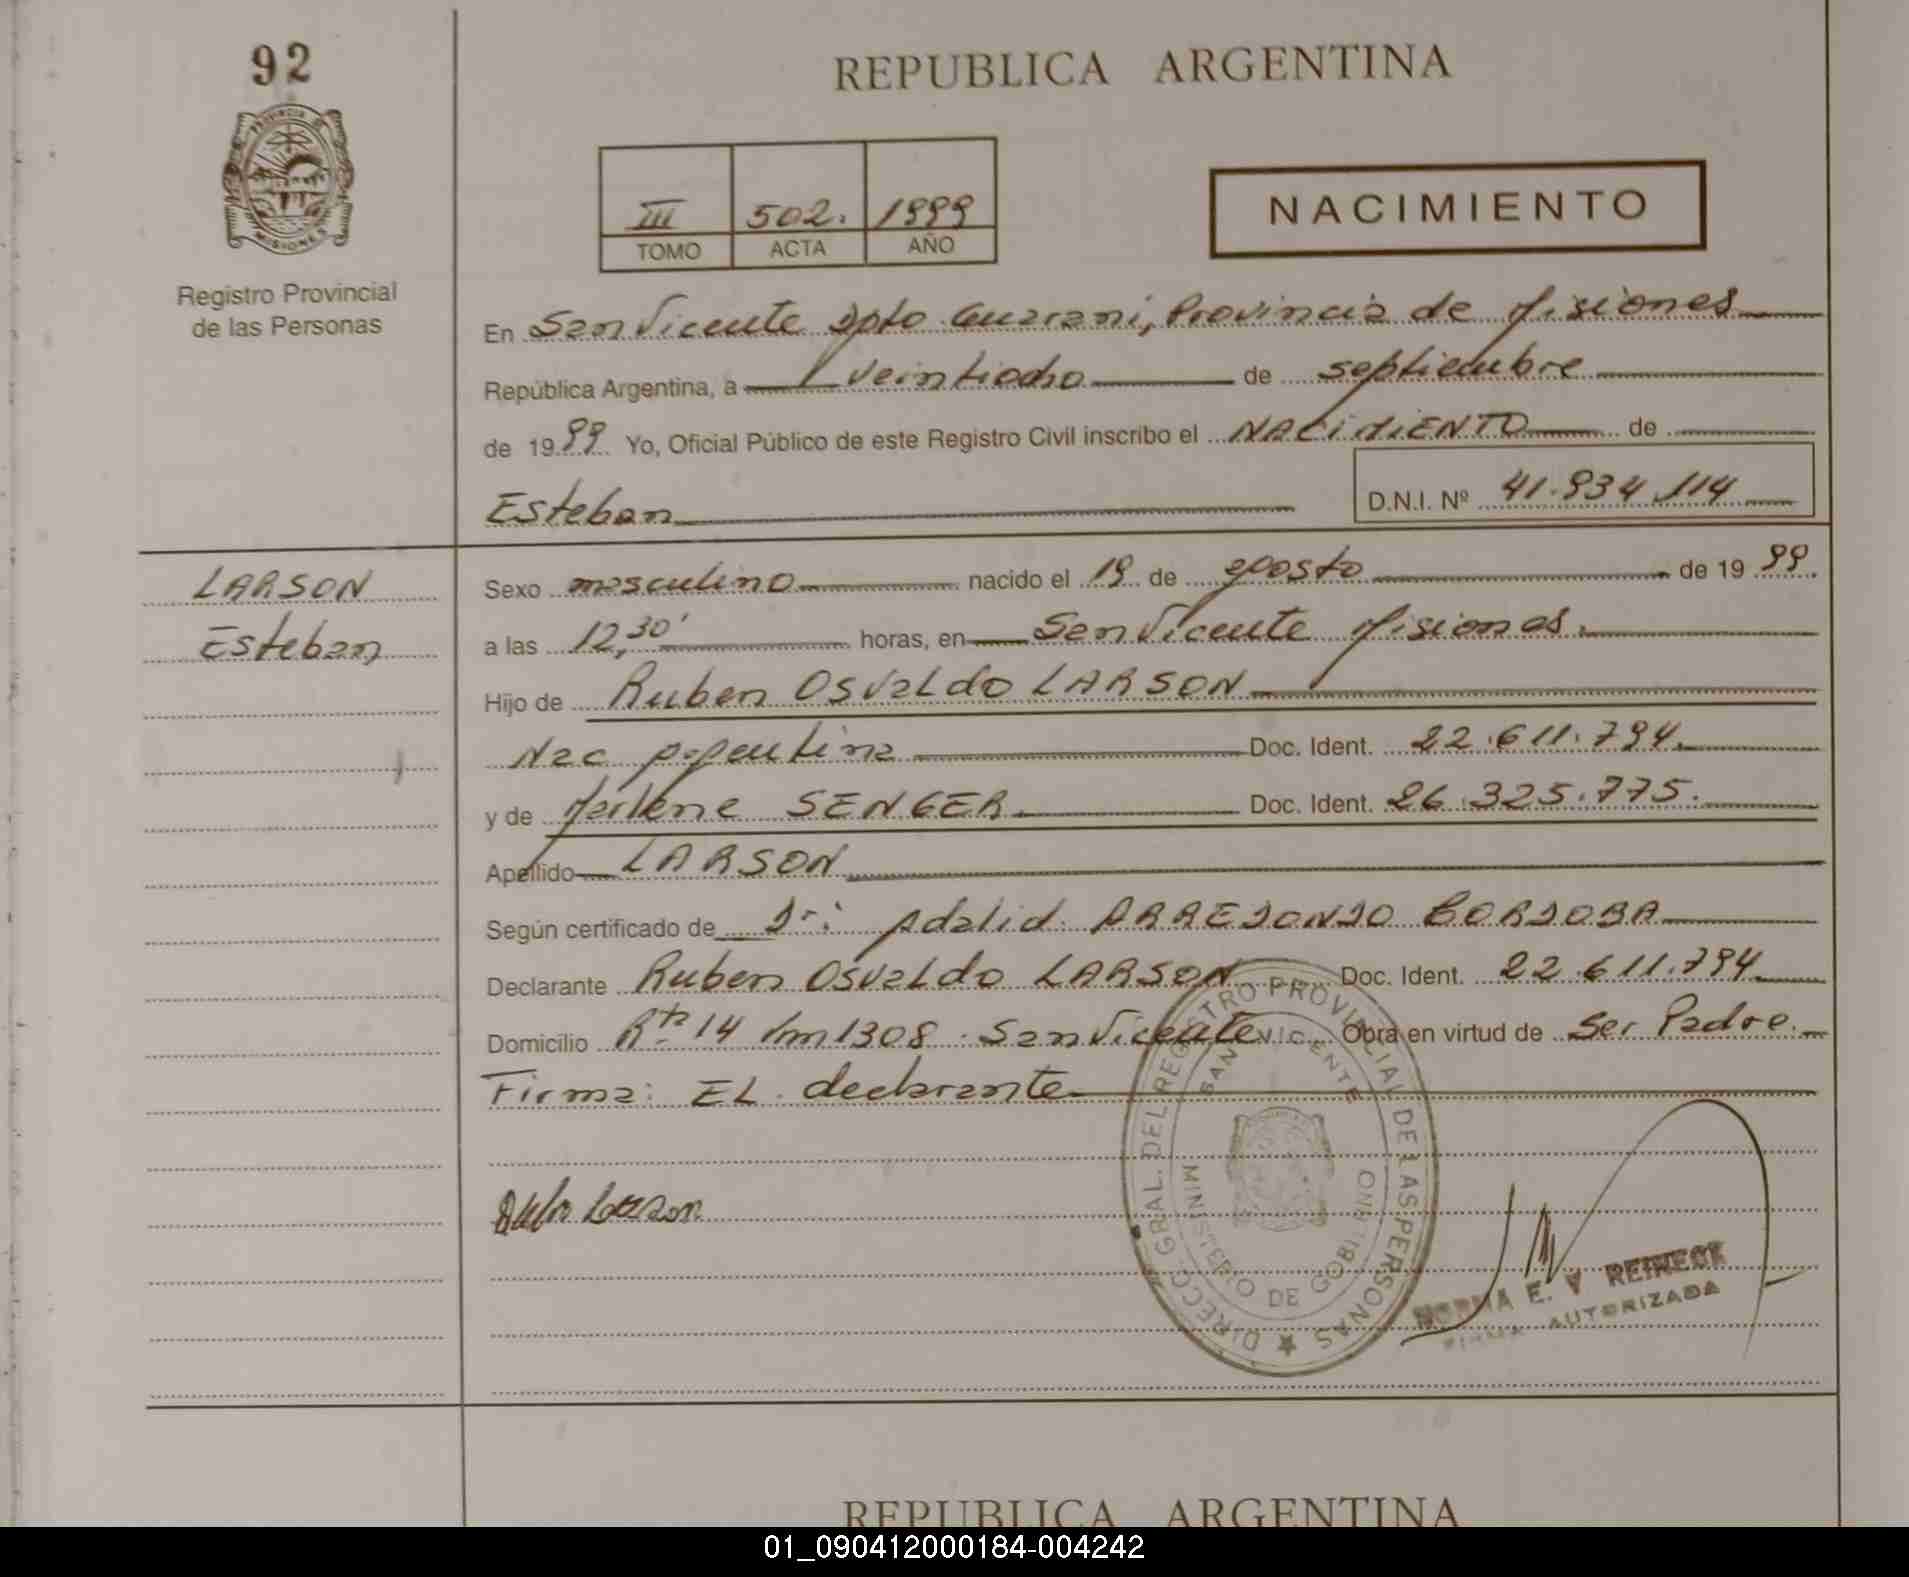 92
REPUBLICA ARGENTINA
PROVINCIA DE
MISIONES
Registro Provincial
de las Personas
III 502. 1999
TOMO ACTA AÑO
NACIMIENTO
En San Vicente Dpto Guarani, Provincia de Misiones
República Argentina, a veintiocho de septiembre
de 1999 Yo, Oficial Público de este Registro Civil inscribo el NACIMIENTO de
Esteban D.N.I. Nº 41.934.114
LARSON
Esteban
Sexo masculino nacido el 19 de agosto de 1999.
a las 12,30' horas, en San Vicente Misiones.
Hijo de Ruben Osvaldo LARSON
Nac Argentina Doc. Ident. 22.611.794.
y de Marlene SENGER Doc. Ident. 26.325.775.
Apellido LARSON
Según certificado de Dr: Adalid ARREDONDO CORDOBA
Declarante Ruben Osvaldo LARSON Doc. Ident. 22.611.794
Domicilio Rta 14 km 1308 San Vicente Obra en virtud de Ser Padre.
Firma: EL declarante
DIRECC. GRAL. DEL REGISTRO PROVINCIAL DE LAS PERSONAS
SAN VICENTE
MINISTERIO DE GOBIERNO
Larson
NORMA E. V REINECK
FIRMA AUTORIZADA
REPUBLICA ARGENTINA
01_090412000184-004242